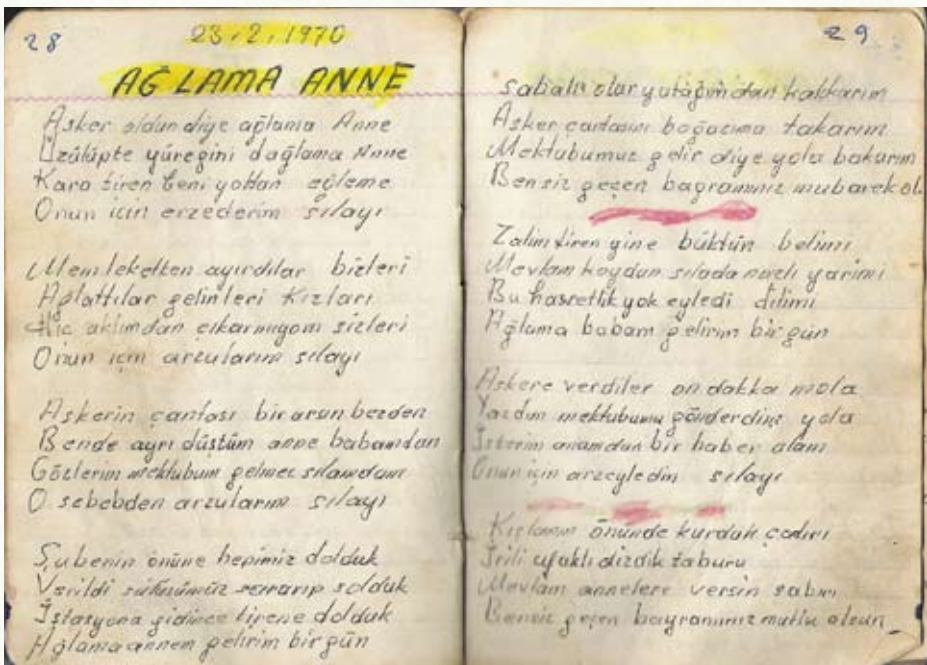 28
23.2.1970
AĞLAMA ANNE
Asker oldun diye ağlama Anne
Üzülüpte yüreğini dağlama Anne
Kara tiren beni yoldan eğleme
Onun için erzederim sılayı
Memleketten ayırdılar bizleri
Ağlattılar gelinleri Kızları
Hiç aklımdan çıkarmıyom sizleri
Onun için arzularım sılayı
Askerin çantası bir arşın bezden
Bende ayrı düştüm anne babamdan
Gözlerim mektubum gelmez sılamdan
O sebebden arzularım sılayı
Şubenin önüne hepimiz dolduk
Verildi sararıp solduk
İstasyona gidince tirene dolduk
Ağlama annem gelirim bir gün
29
Sabah olur yatağımdan kalkarım
Asker çantasını boğazıma takarım
Mektubumuz gelir diye yola bakarım
Bensiz geçen bayramınız mubarek ol
Zalim tiren yine büktün belimi
Mevlam koydun sılada nazlı yarimi
Bu hasretlik yok eyledi dilimi
Ağlama babam gelirim bir gün
Askere verdiler on dakka mola
Yazdım mektubumu gönderdim yola
İsterim anamdan bir haber alam
Onun için arzeyledim sılayı
Kışlanın önünde kurduk çadırı
İrili ufaklı dizdik taburu
Mevlam annelere versin sabırı
Bensiz geçen bayramınız mutlu olsun